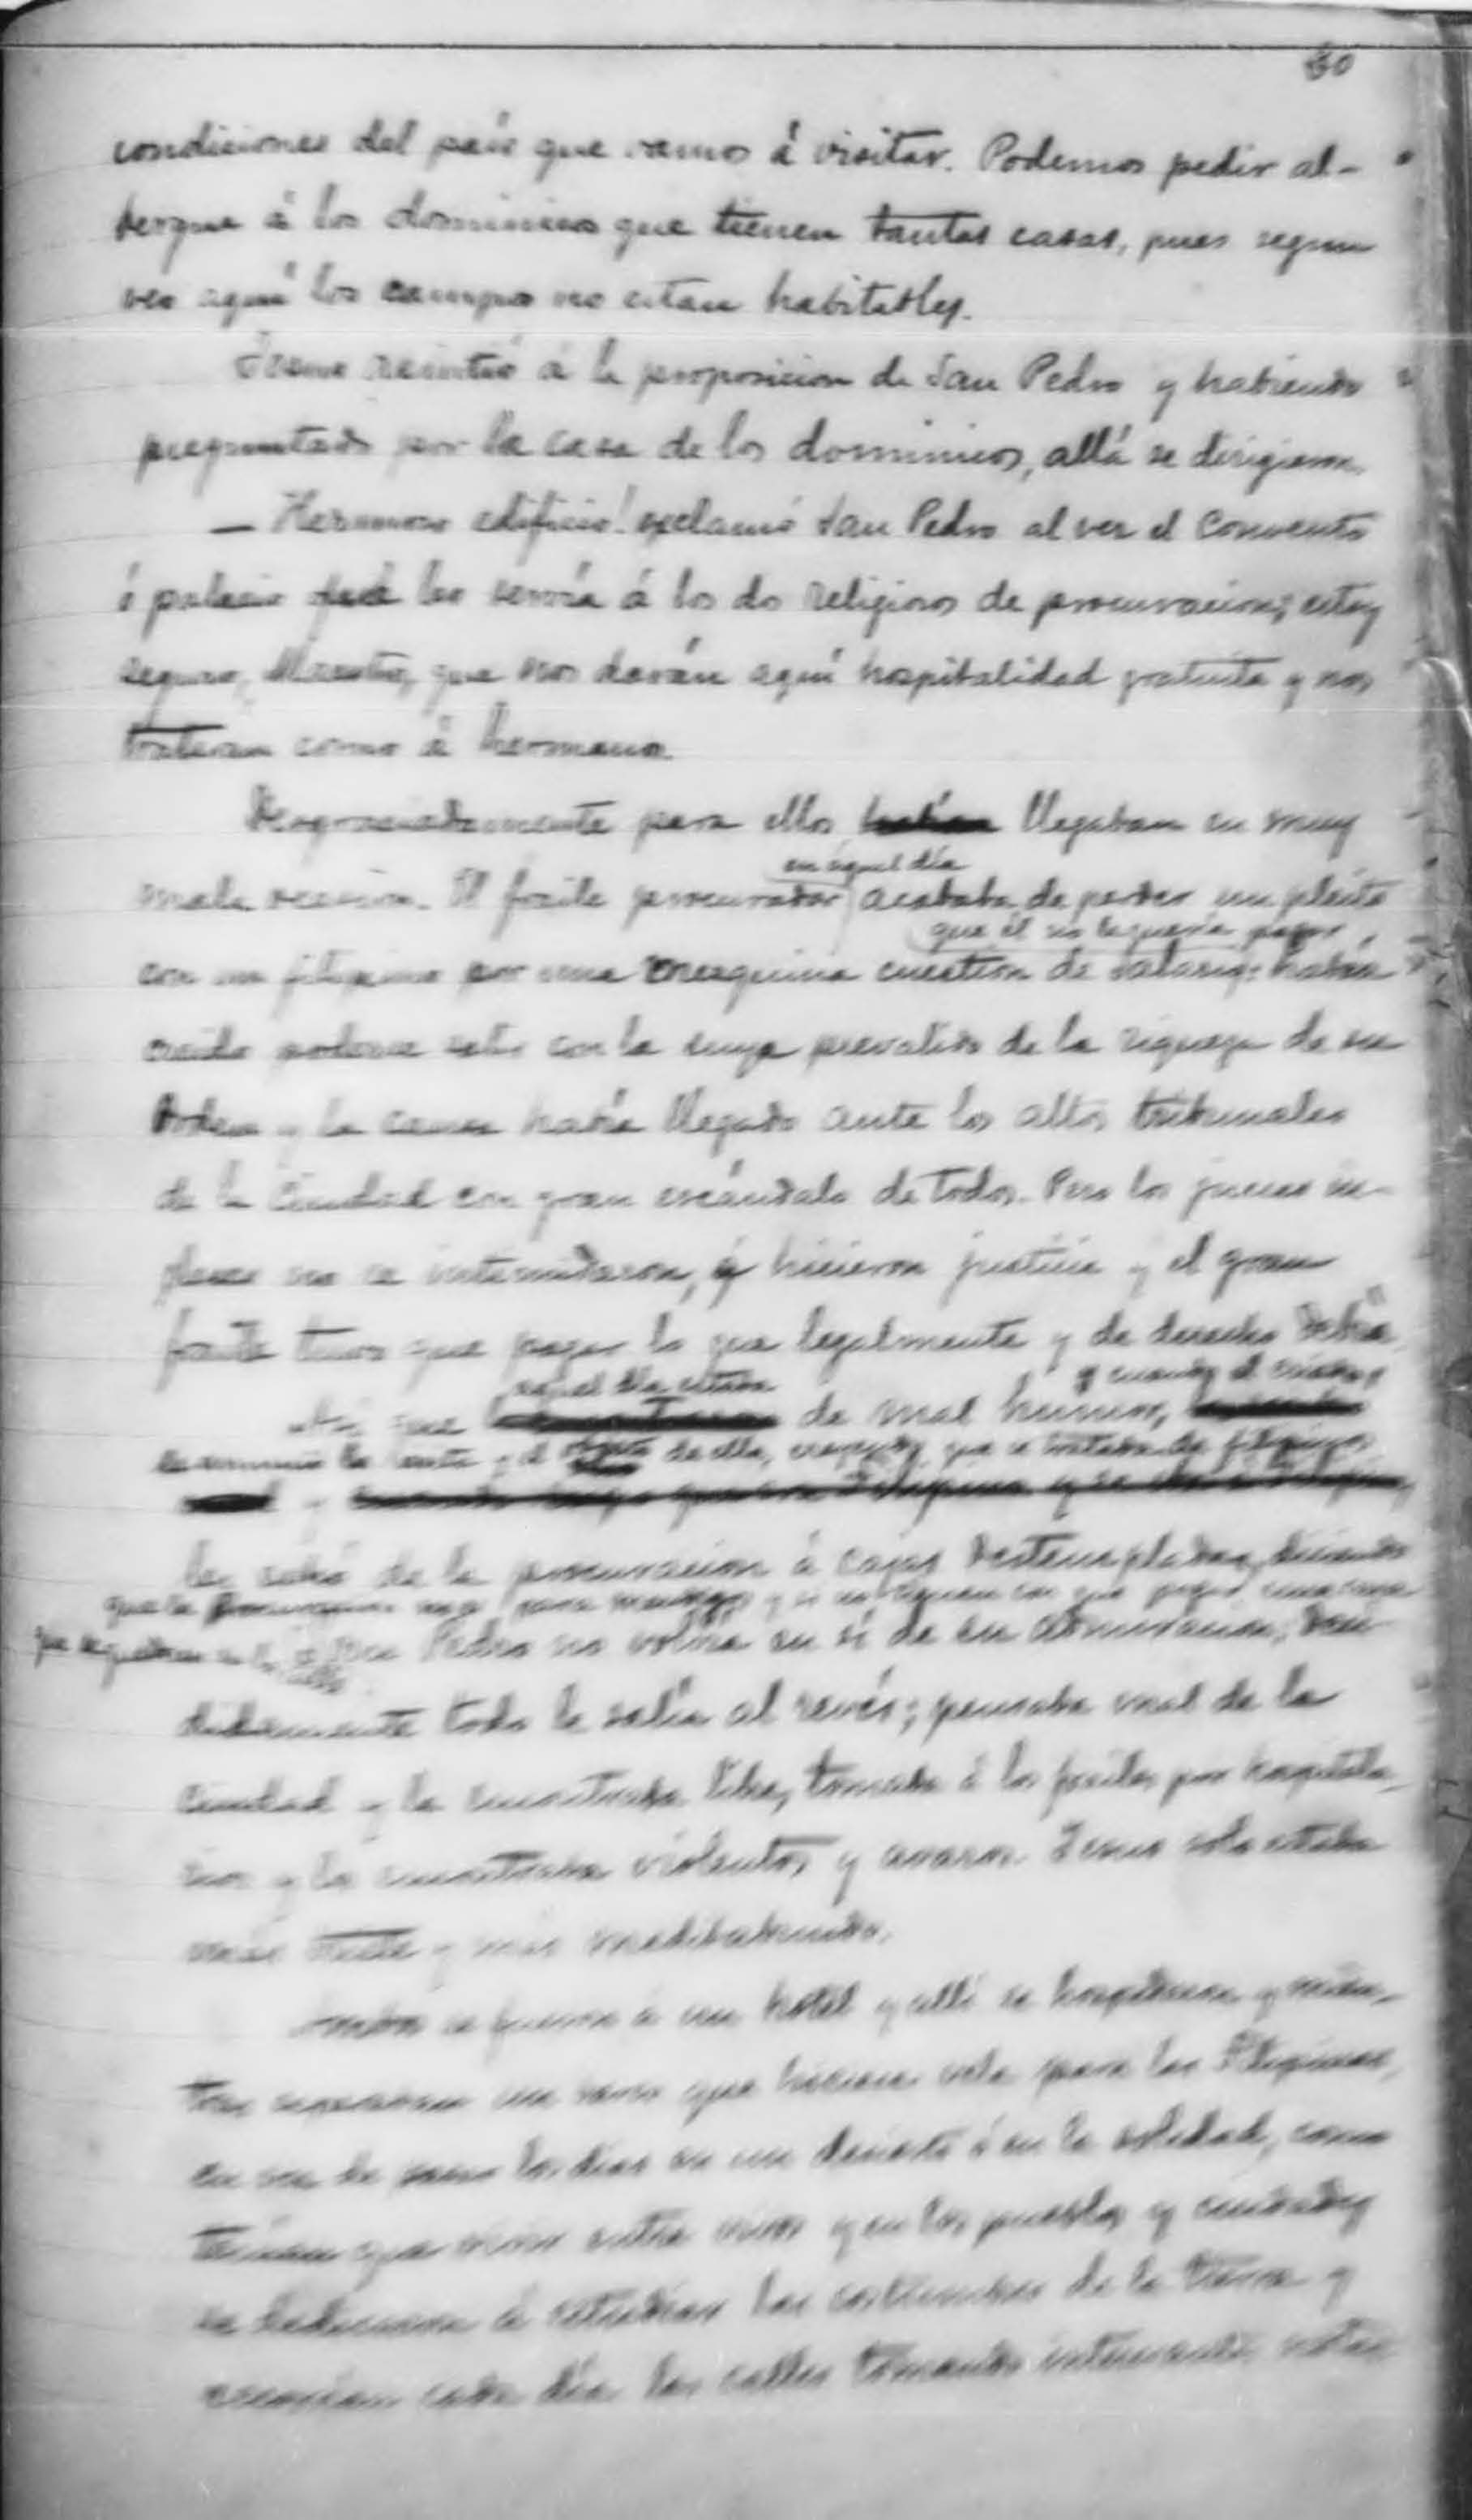 60
condiciones del país que vamos á visitar. Podemos pedir al-
bergue á los dominicos que tienen tantas casas, pues segun
veo aquí los campos no estan habitables.
Jesus asintió á la proposicion de San Pedro y habiendo
preguntado por la casa de los dominicos, allá se dirigieron.
— Hermoso edificio! exclamó San Pedro al ver el Convento
ó palacio que les servía á los do religiosos de procuracion; estoy
seguro, Maestro, que nos darán aquí hospitalidad gratuita y nos
trataran como á hermanos.
Desgraciadamente para ellos habían llegaban en muy
en aquel día
mala ocasion. El fraile procurador acababa de perder un pleito
que él no le quería pagar,
con un filipino por una mezquina cuestión de salario: había
creido poderse salir con la suya prevalido de la riqueza de su
Orden y la causa había llegado ante los altos tribunales
de la Ciudad con gran escándalo de todos. Pero los jueces in-
gleses no se intimidaron, é hicieron justicia y el gran
fraile tuvo que pagar lo que legalmente y de derecho debía
aquel día estaba y cuando el criado
Así que de mal humor,
le anunció la visita y el objeto de ella, creyendo que se trataba de filipinos
les echó de la procuracion á cajas destempladas, diciendo
que la Procuracion no para y si no tienen con que pagar una casa
que se queden en la calle
San Pedro no volvía en sí de su admiracion; deci-
didamente todo le salía al revés; pensaba mal de la
Ciudad y la encontraba libre, tomaba á los frailes por hospitala-
rios y los encontraba violentos y avaros. Jesus solo estaba
más triste y más meditabundo.
Ambos se fueron á un hotel y allí se hospedaron y mien-
tras esperaban un vapor que hiciera vela para las Filipinas,
en vez de pasar los días en un desierto ó en la soledad, como
tenían que vivir entre vivos y en los pueblos y ciudades
se dedicaron á estudiar las costumbres de la tierra y
recorrían cada día las calles tomando interesantes notas